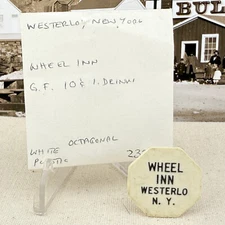 BUL
WESTERLO, NEW YORK
WHEEL INN
G.F. 10¢ 1. DRINK
OCTAGONAL
WHITE
PLASTIC
WHEEL
INN
WESTERLO
N. Y.